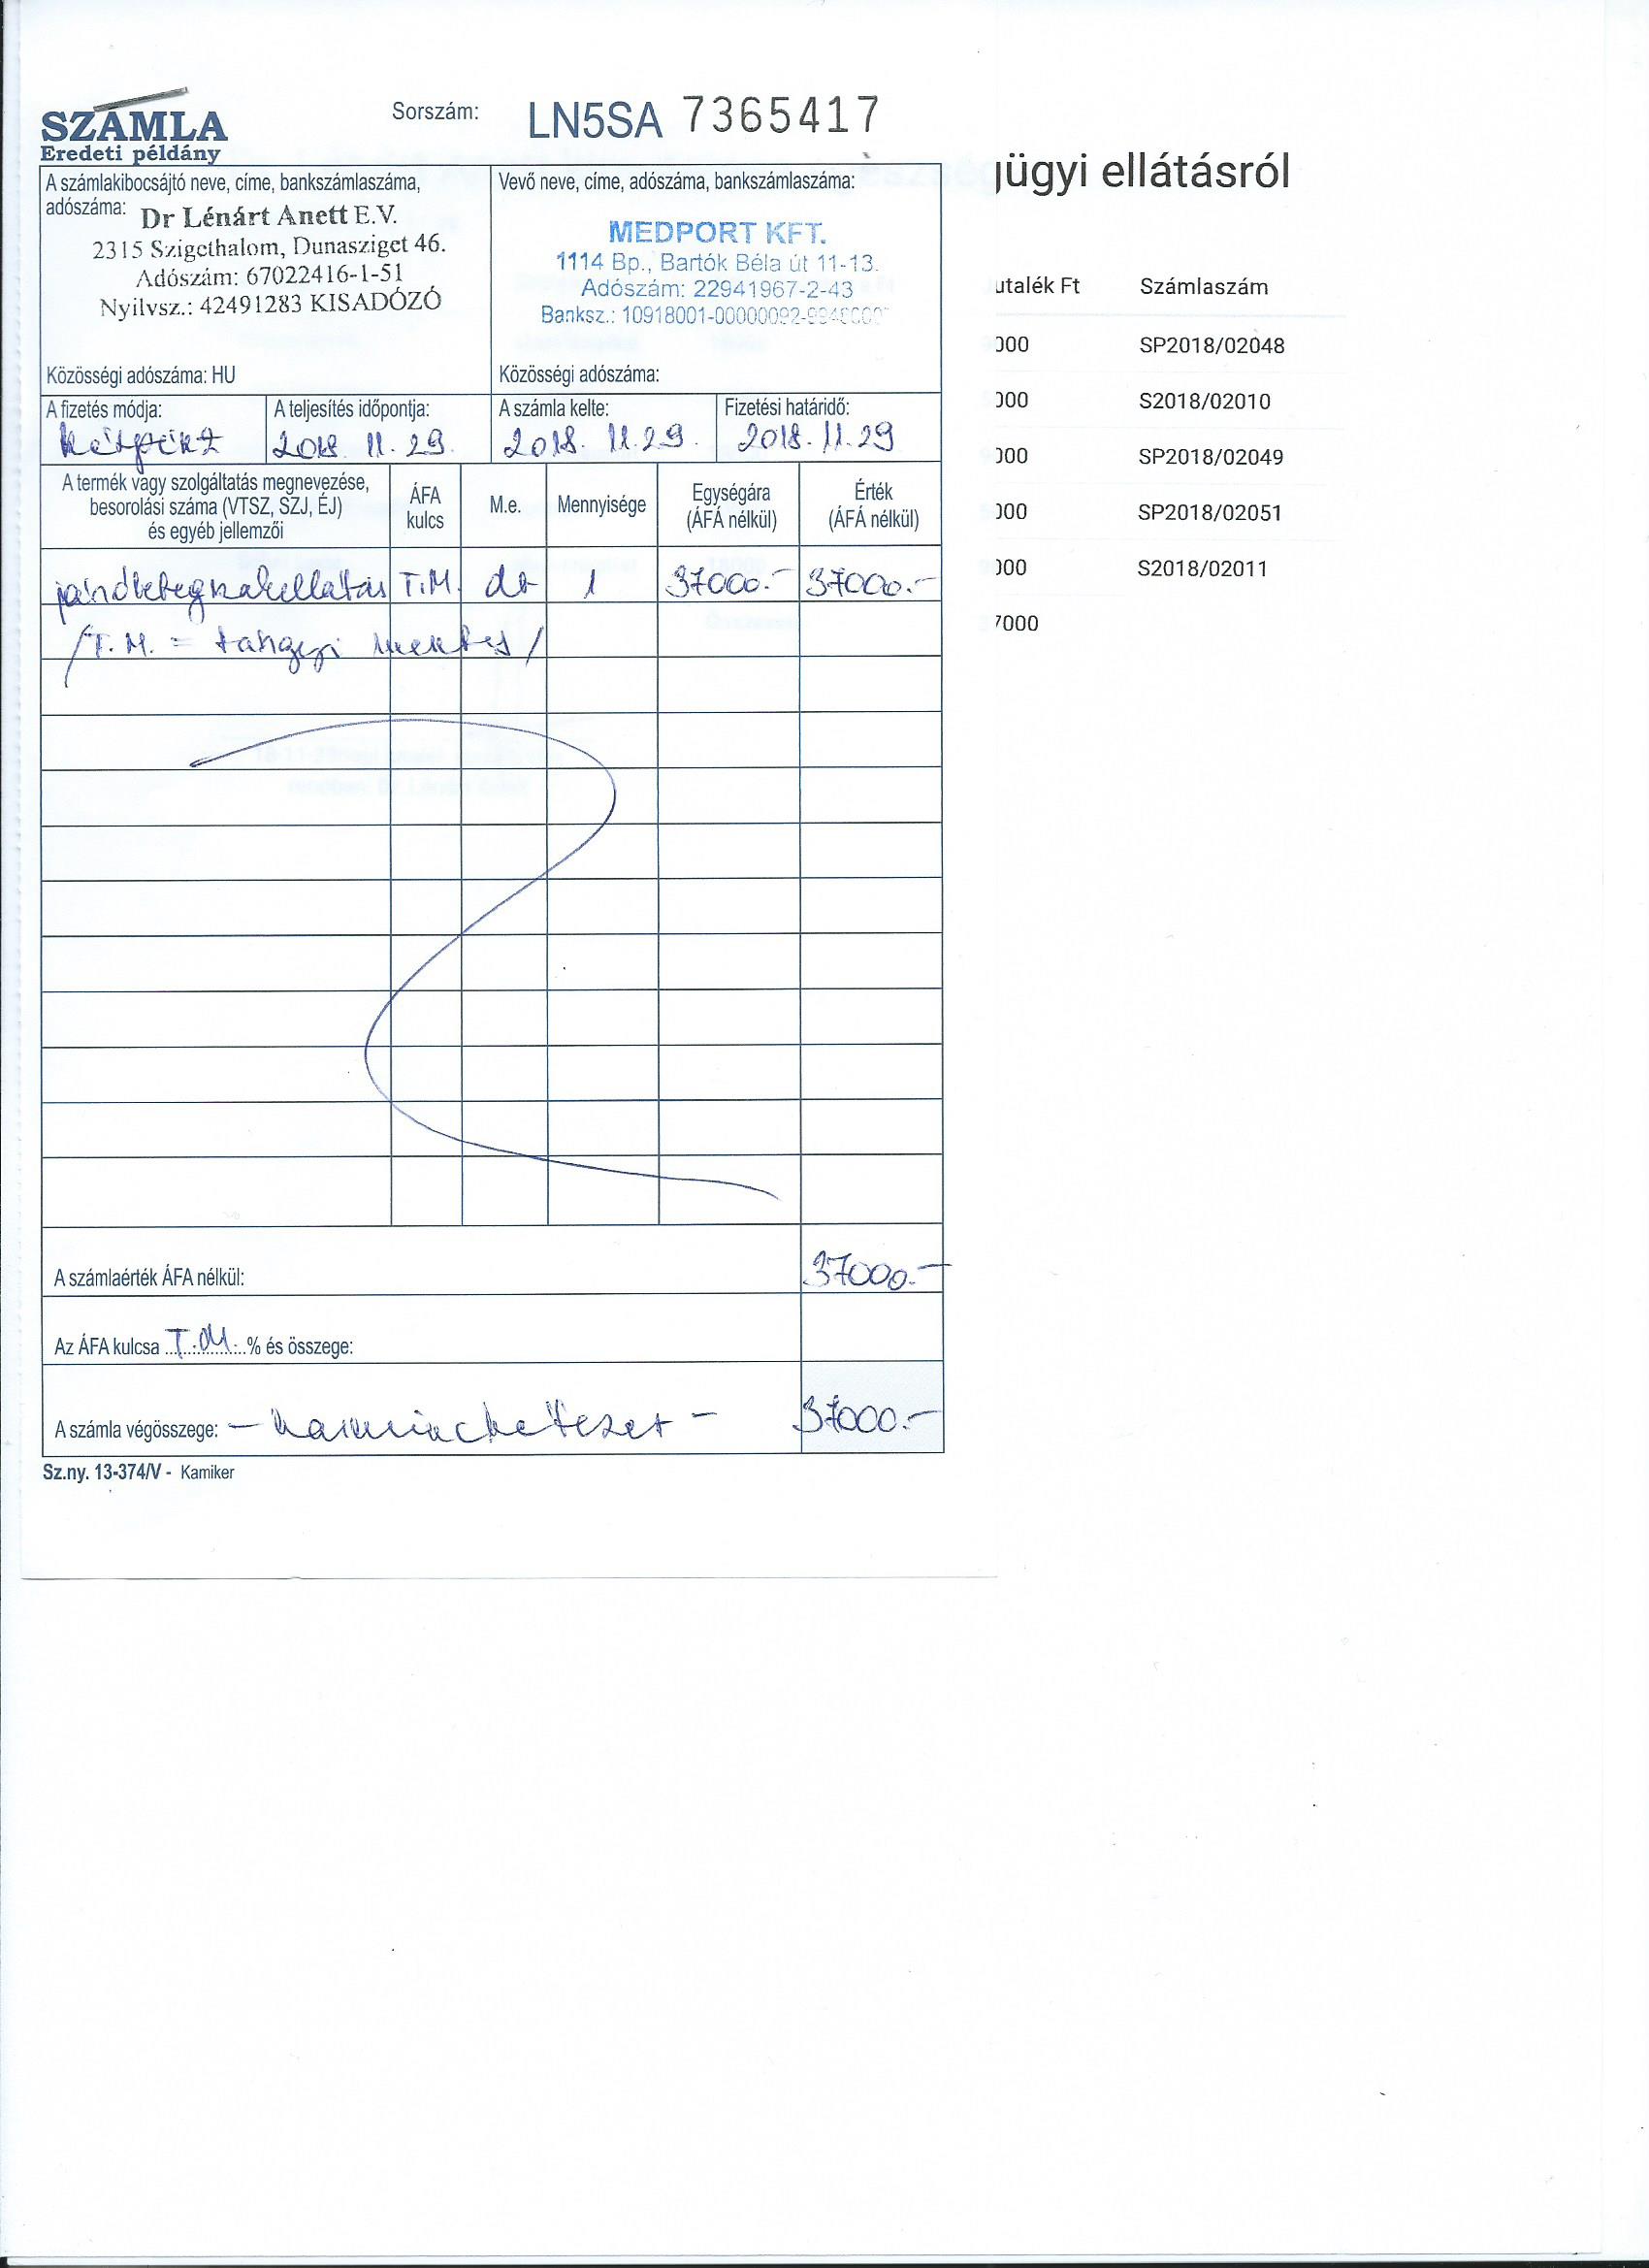 SZÁMLA
Eredeti példány
Sorszám: LN5SA 7365417
A számlakibocsájtó neve, címe, bankszámlaszáma,
adószáma: Dr Lénárt Anett E.V.
2315 Szigethalom, Dunasziget 46.
Adószám: 67022416-1-51
Nyilvsz.: 42491283 KISADÓZÓ
Közösségi adószáma: HU
Vevő neve, címe, adószáma, bankszámlaszáma:
MEDPORT KFT.
1114 Bp., Bartók Béla út 11-13.
Adószám: 22941967-2-43
Banksz.: 10918001-00000092-
Közösségi adószáma:
A fizetés módja:
A teljesítés időpontja: 2018. 11. 29.
A számla kelte: 2018. 11. 29.
Fizetési határidő: 2018. 11. 29
A termék vagy szolgáltatás megnevezése,
besorolási száma (VTSZ, SZJ, ÉJ)
és egyéb jellemzői
ÁFA
kulcs
M.e.
Mennyisége
Egységára
(ÁFÁ nélkül)
Érték
(ÁFÁ nélkül)
járóbetegszakellátás T.M. db 1 37000.- 37000.-
/T.M. = tárgyi mentes/
A számlaérték ÁFA nélkül: 37000.-
Az ÁFA kulcsa T.M. % és összege:
A számla végösszege: - harminchétezer - 37000.-
Sz.ny. 13-374/V - Kamiker
ügyi ellátásról
utalék Ft Számlaszám
000 SP2018/02048
000 S2018/02010
000 SP2018/02049
000 SP2018/02051
000 S2018/02011
7000